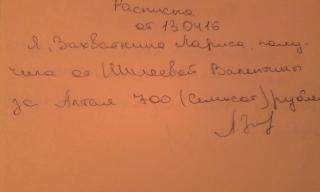 Расписка
от 13.04.16
Я, Захваткина Лариса, полу-
чила от Шилеевой Валентины
за 700 (Семьсот) рубле